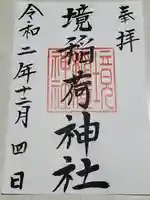 奉拝
境稲荷神社
令和二年十二月四日